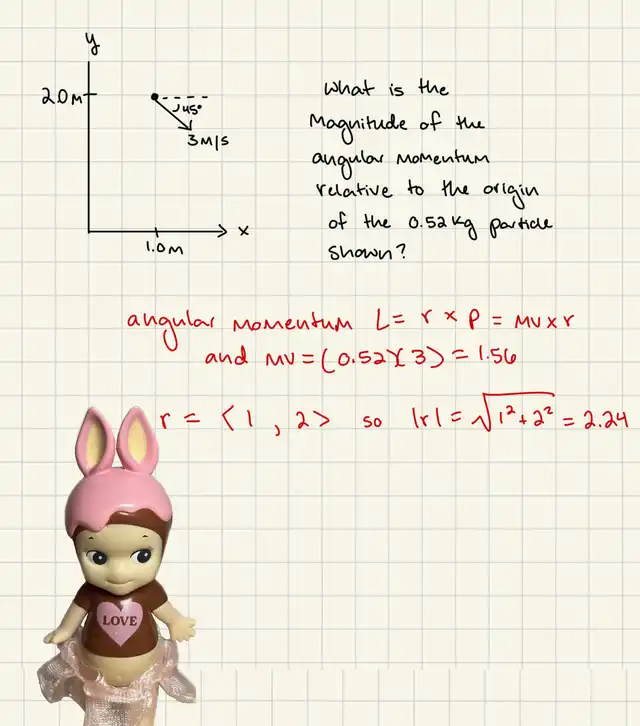 y
2.0 M
45°
3 M/S
x
1.0 M
What is the
Magnitude of the
angular Momentum
relative to the origin
of the 0.52 kg particle
shown?
angular momentum L = r × P = mv × r
and mv = (0.52)(3) = 1.56
r = < 1 , 2 > so |r| = √1² + 2² = 2.24
LOVE